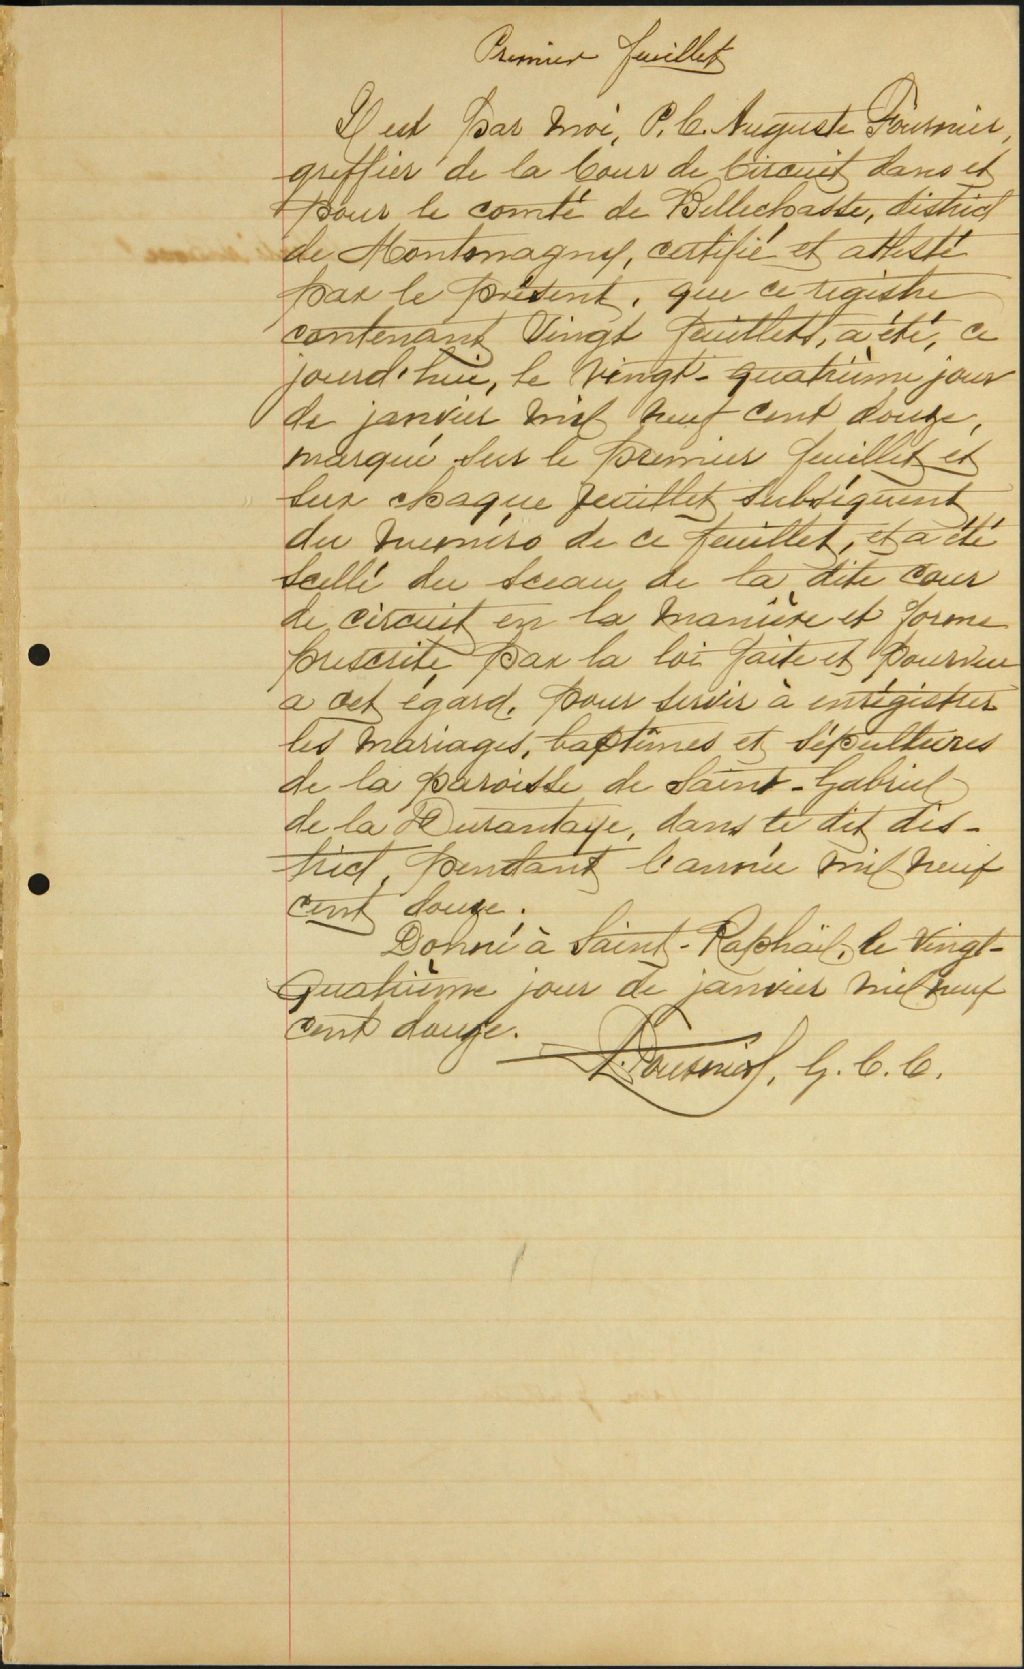 Premier feuillet
Il est par moi, P. C. Auguste Fournier,
greffier de la Cour de Circuit dans et
pour le comté de Bellechasse, district
de Montmagny, certifié et attesté
par le présent, que ce registre
contenant Vingt feuillets, a été, ce
jourd'hui, le vingt-quatrième jour
de janvier mil neuf cent douze,
marqué sur le premier feuillet et
sur chaque feuillet subséquent
du numéro de ce feuillet, et a été
scellé du sceau de la dite cour
de circuit en la manière et forme
prescrite par la loi faite et pourvue
a cet égard, pour servir à enrégistrer
les mariages, baptêmes et sépultures
de la paroisse de Saint-Gabriel
de la Durantaye, dans le dit dis-
trict, pendant l'année mil neuf
cent douze.
Donné à Saint-Raphäel, le Vingt-
Quatrième jour de janvier mil neuf
cent douze.
A. Fournier, G. C. C.